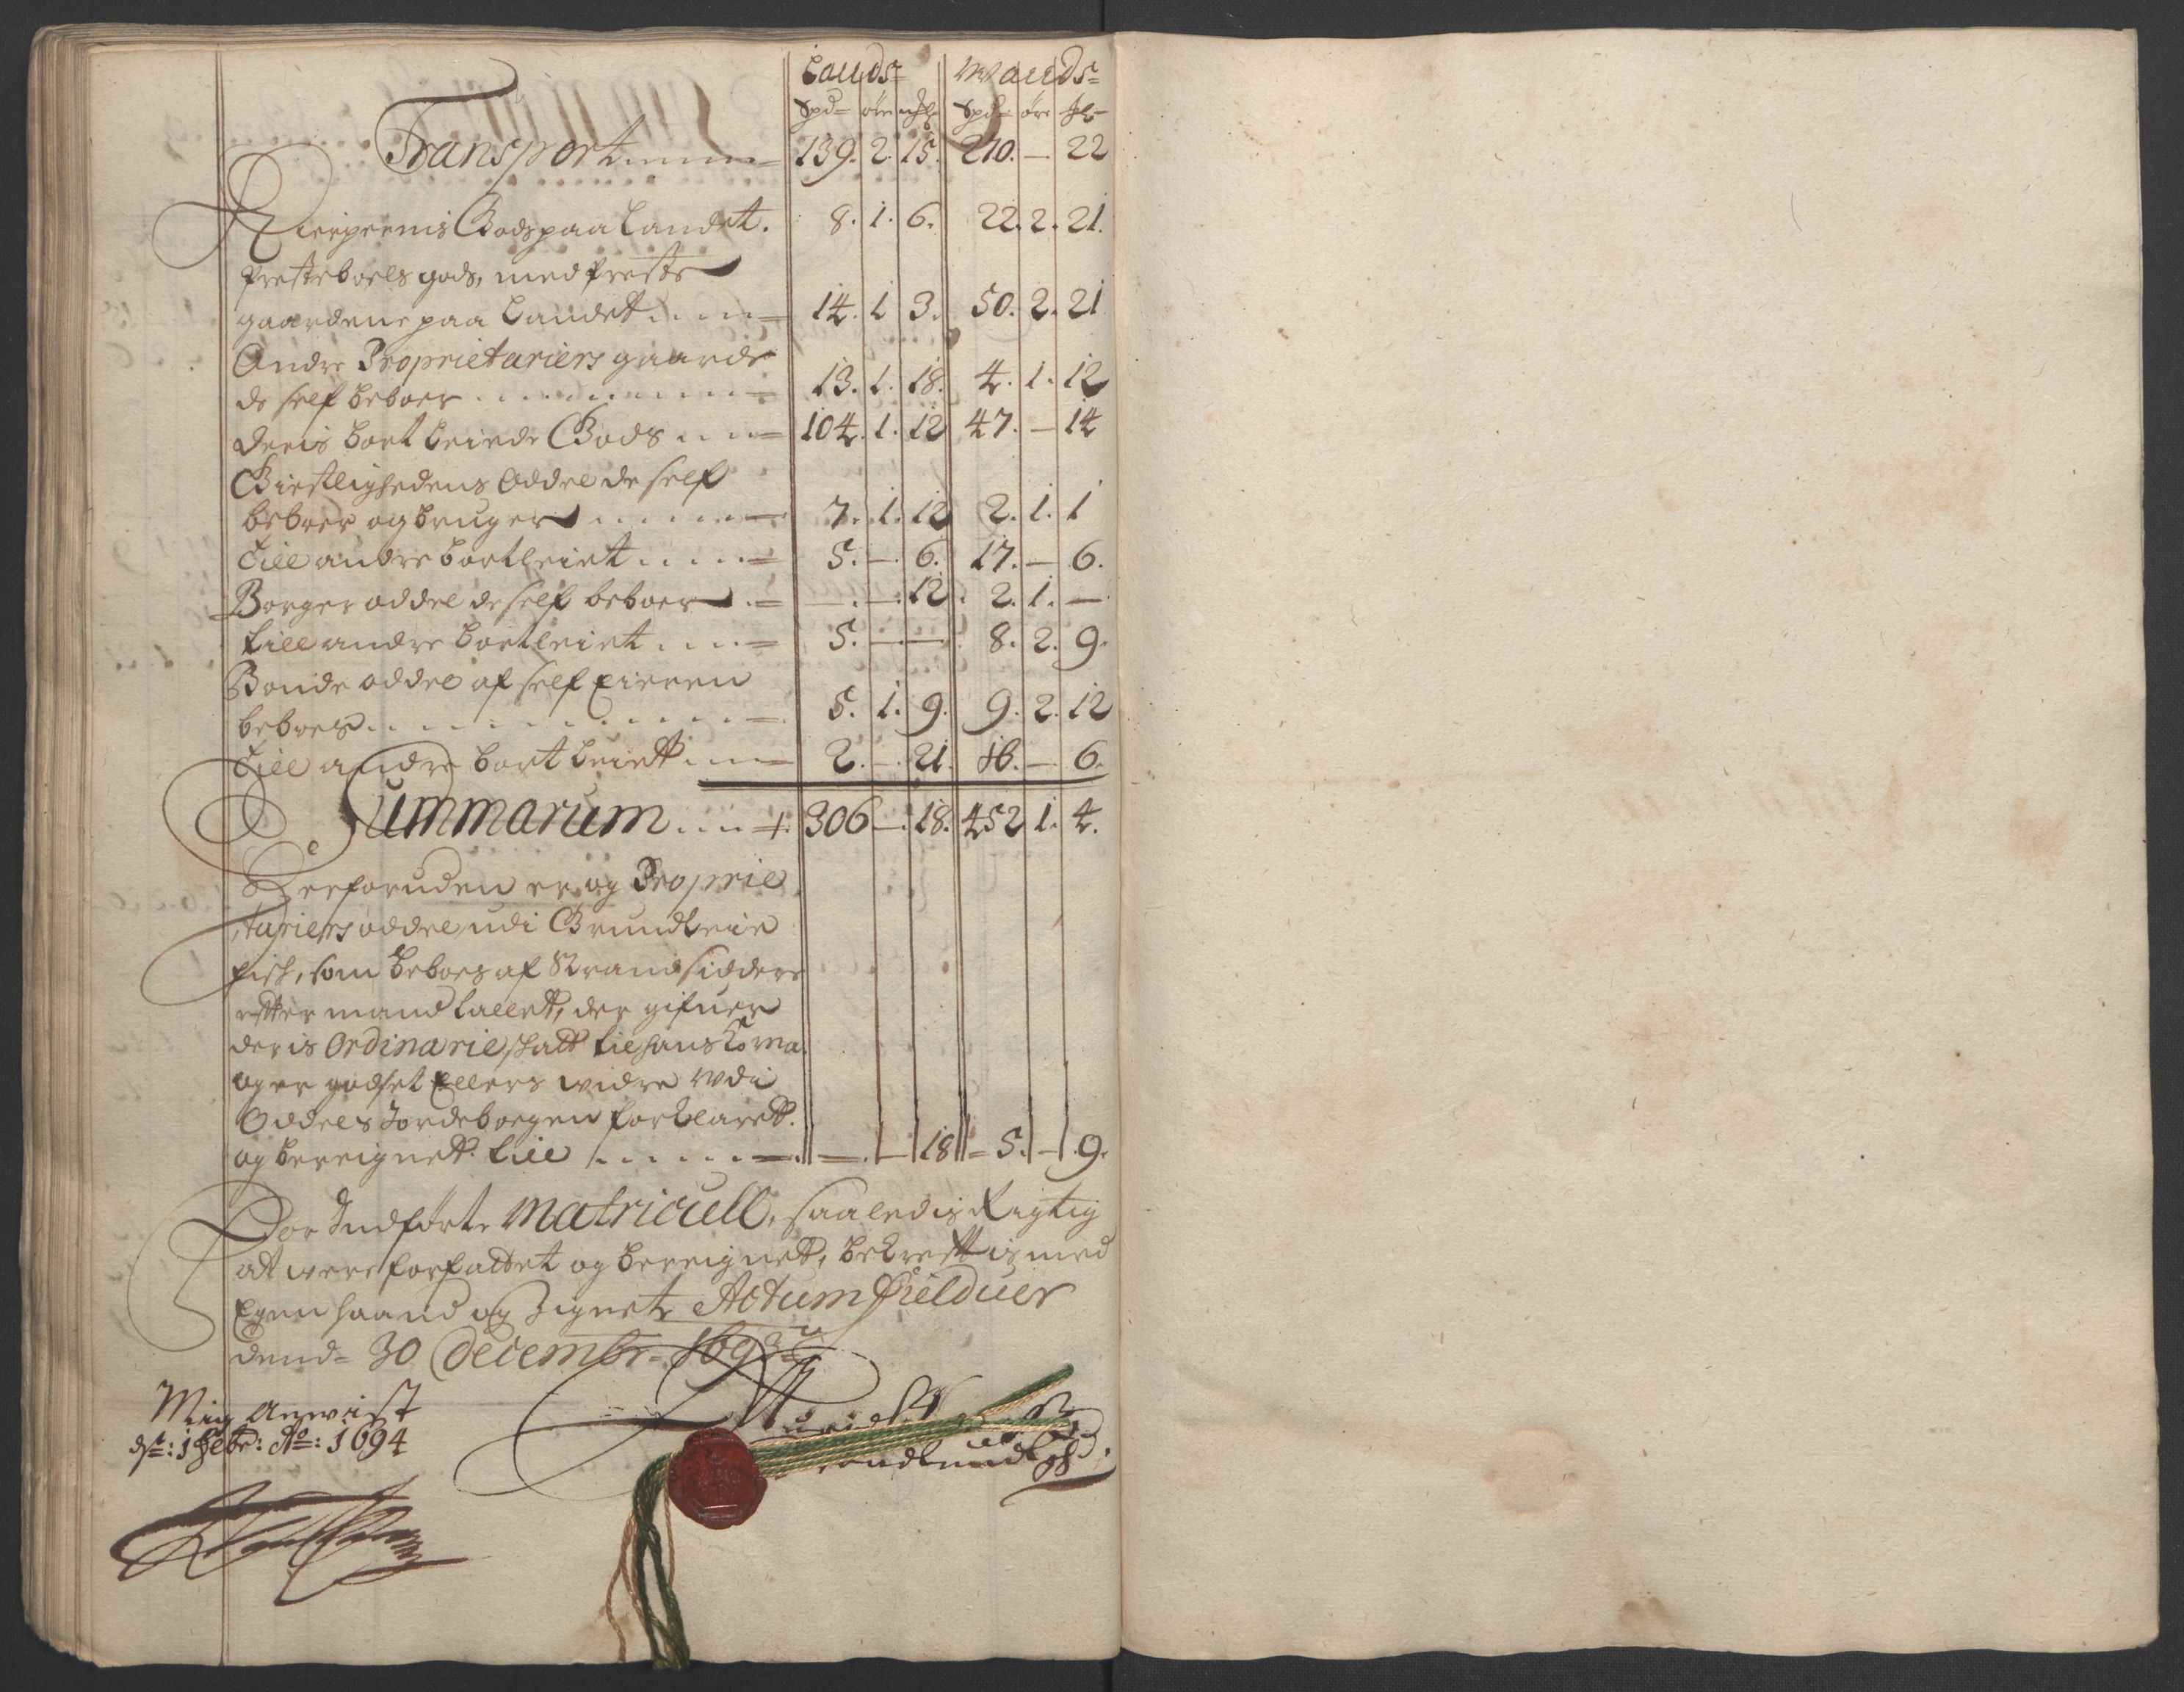 Lauds= Wauds=
Spd= øre mk Spd= øre
Transport 139. 2. 15. 210. — 22
Kierchernis Gods paa Landet. 8. 1. 6. 22. 2. 21.
Presteboels gods, med Preste
gaardene paa Landet 14. 1 3. 50. 2. 21
Andre Proprietariers gaarde
de self beboer 13. 1. 18. 4. 1. 12
Deris bort leiede Gods 104. 1. 12 47. — 14
Giestlighedens Oddel de self
beboer og bruger 7. 1. 12 2. 1. 1
Till andre bortleiet 5. — 6. 17. — 6.
Borger oddel de self beboer — . — . 12. 2. 1. —
till andre bortleiet 5. — — 8. 2. 9.
Bonde oddel af self Eieren
beboes 5. 1. 9. 9. 2. 12
Till andre bort leiett 2. — 21. 16. — 6.
Summarum 306 — 18. 452 1. 4.
Herforuden er og Proprie
tariers oddel udi Grundleie
fisk, som beboes af Strandsiddere
effter mandtallett, der gifuer
deris Ordinarie skatt til hans Ko Ma
og er godset Ellers widre Wdi
Oddels Jordebogen forklarett.
og bereignett till — . — 18 5. — 9.
For Indførte Matricull, saaledis Rigtig
at were forfattet og bereignett, bekrefftis med
Egen haand og Zignete Actum Fielduer
dend= 30 Decembr= 1693
Mig Anwist
dt: 1 Febr: Ao: 1694